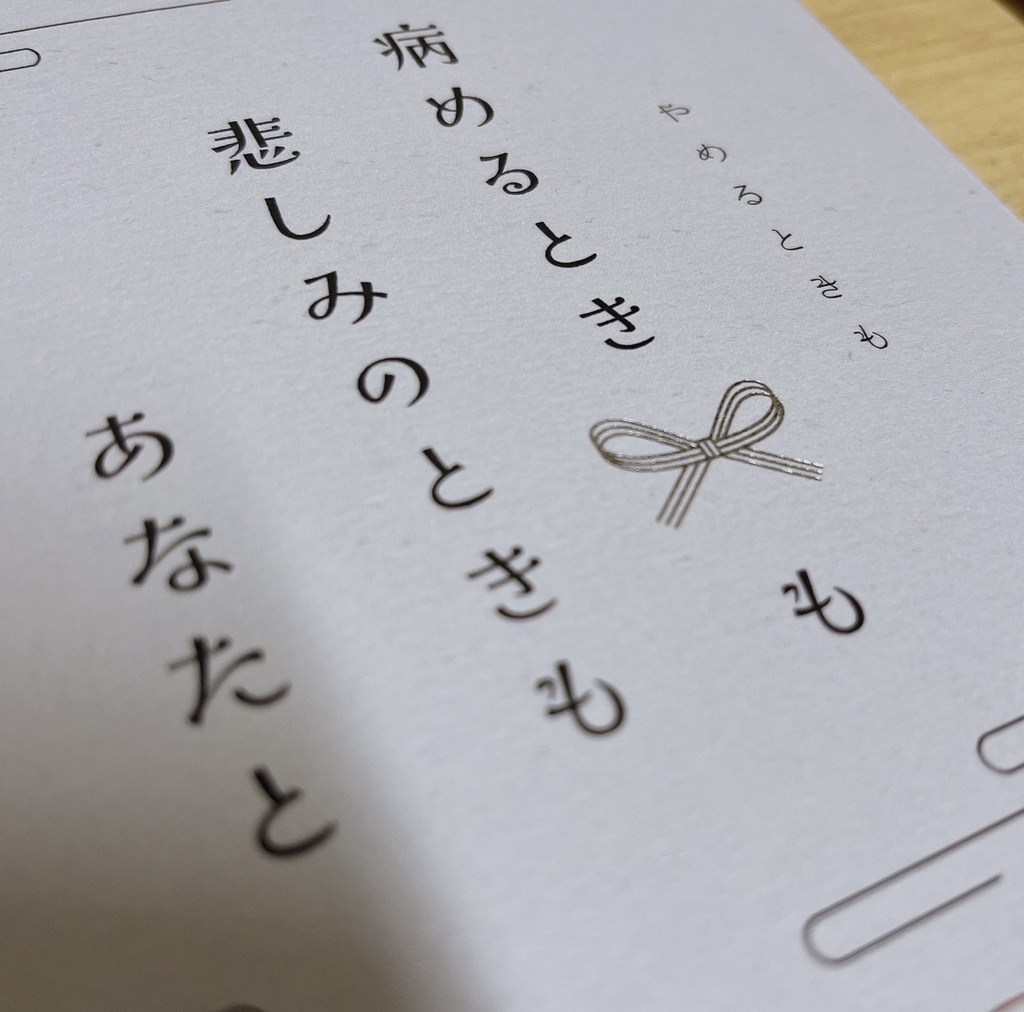 やめるときも
病めるときも
悲しみのときも
あなたと